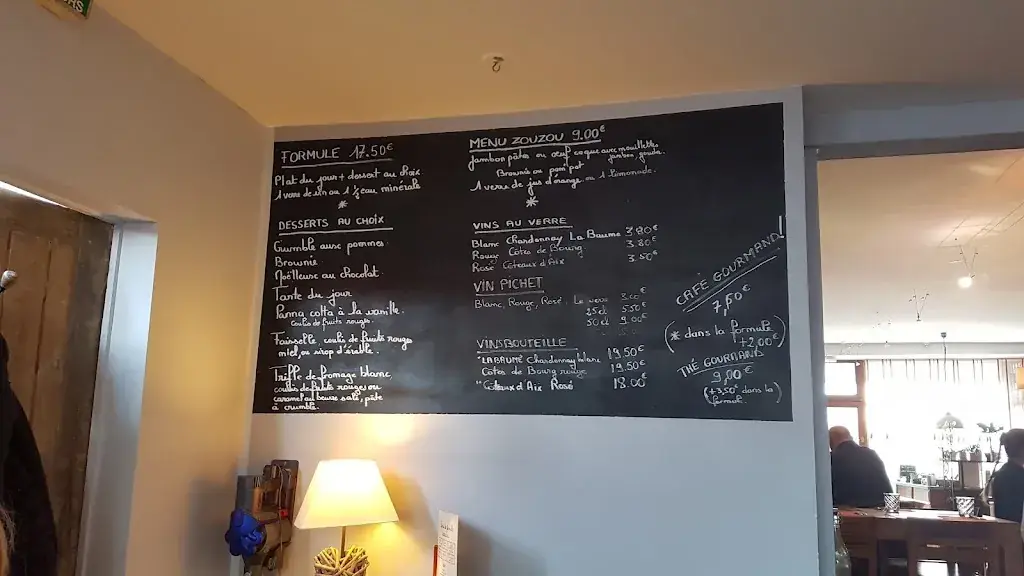 FORMULE 17.50€
Plat du jour + dessert au choix
1 verre de vin ou 1 ½ eau minérale
*
DESSERTS AU CHOIX
Crumble aux pommes
Brownie
Moëlleux au chocolat
Tarte du jour
Panna cotta à la vanille.
Coulis de fruits rouges.
Faisselle coulis de fruits rouges
miel, ou sirop d'érable.
de fromage blanc
coulis de fruits rouges ou
caramel au beurre salé, pâte
à crumble.
MENU ZOUZOU 9.00€
Jambon pâtes ou oeuf coque avec mouillettes
jambon,
Brownie ou pom'pot
1 verre de jus d'orange ou 1 limonade.
*
VINS AU VERRE
Blanc Chardonnay La Baume 3.80€
Rouge Côtes de Bourg 3.80€
Rosé Côteaux d'Aix 3.50€
VIN PICHET
Blanc, Rouge, Rosé. Le verre 3.00€
25cl 5.50€
50cl 9.00€
VINS BOUTEILLE
"LA BAUME" Chardonnay blanc 19.50€
Côtes de Bourg rouge 19.50€
"Côteaux d'Aix Rosé 18.00€
CAFÉ GOURMAND!
7,50€
(* dans la formule
+2,00€)
THÉ GOURMAND
9,00€
(+3.50€ dans la
formule)